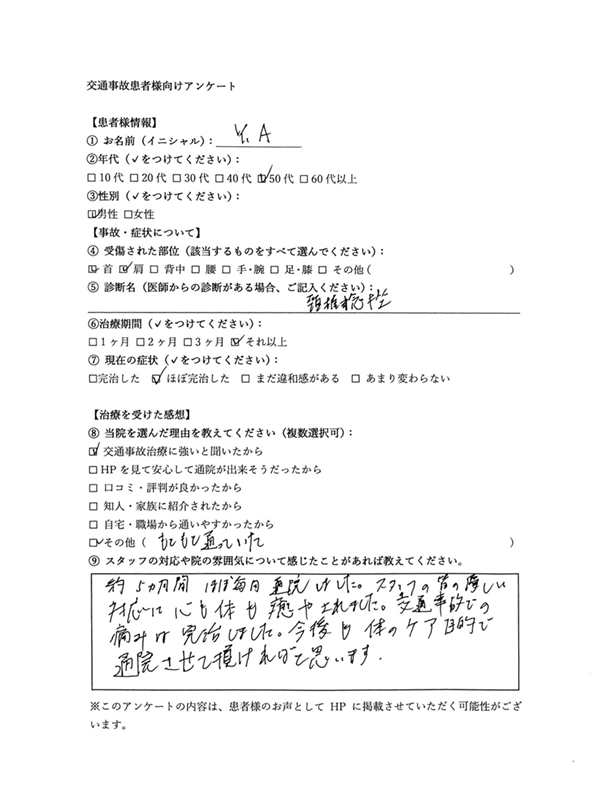 交通事故患者様向けアンケート
【患者様情報】
① お名前（イニシャル）：Y. A
②年代（✓をつけてください）：
□10代 □20代 □30代 □40代 ☑50代 □60代以上
③性別（✓をつけてください）：
☑男性 □女性
【事故・症状について】
④ 受傷された部位（該当するものをすべて選んでください）：
☑ 首 ☑ 肩 □ 背中 □ 腰 □ 手・腕 □ 足・膝 □ その他（ ）
⑤ 診断名（医師からの診断がある場合、ご記入ください）：
頚椎捻挫
⑥治療期間（✓をつけてください）：
□1ヶ月 □2ヶ月 □3ヶ月 ☑それ以上
⑦ 現在の症状（✓をつけてください）：
□完治した ☑ ほぼ完治した □ まだ違和感がある □ あまり変わらない
【治療を受けた感想】
⑧ 当院を選んだ理由を教えてください（複数選択可）：
☑ 交通事故治療に強いと聞いたから
□HPを見て安心して通院が出来そうだったから
□ 口コミ・評判が良かったから
□ 知人・家族に紹介されたから
□ 自宅・職場から通いやすかったから
☑その他（ もともと通っていた ）
⑨ スタッフの対応や院の雰囲気について感じたことがあれば教えてください。
約5カ月間 ほぼ毎日通院しました。スタッフの皆の優しい
対応に心も体も癒やされました。交通事故での
痛みは完治しました。今後も体のケア目的で
通院させて頂ければと思います.
※このアンケートの内容は、患者様のお声としてHPに掲載させていただく可能性がござ
います。